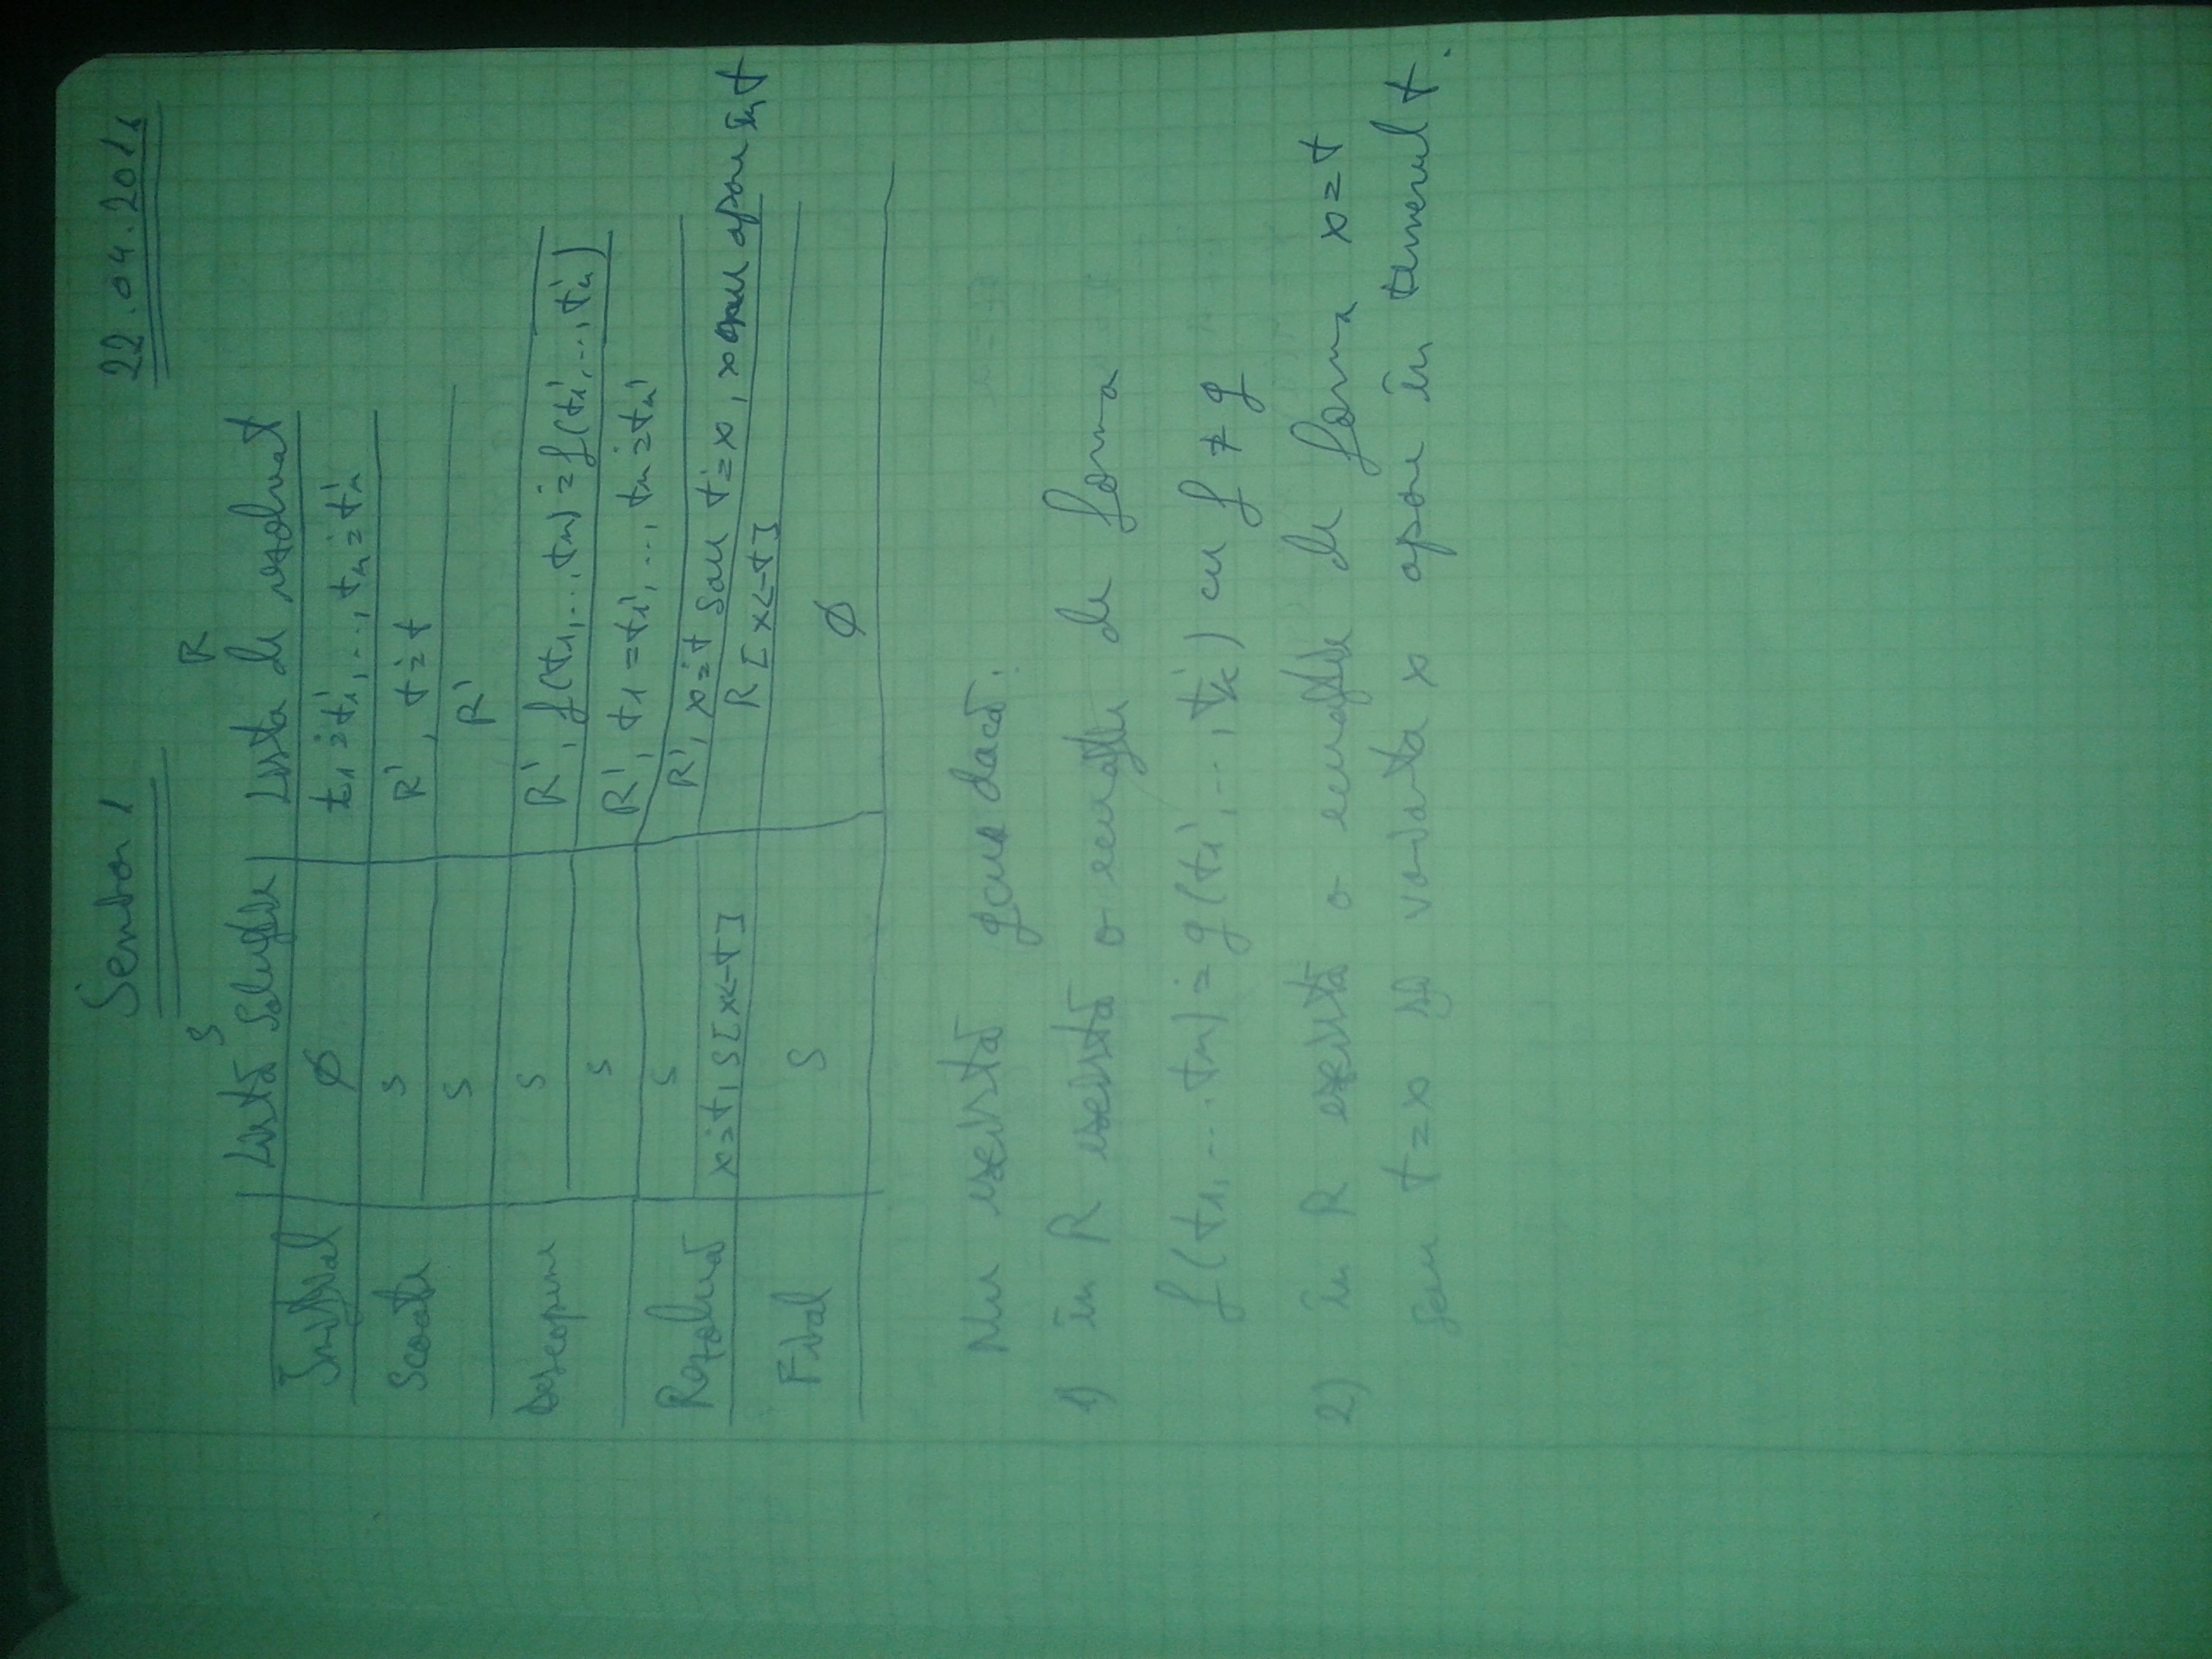 Seminar 1 22.04.2016
S R
Listă Soluție Lista de rezolvat
Inițial ∅ t1 ≐ t1', ..., tn ≐ tn'
Scoate S R', t ≐ t
S R'
Descopune S R', f(t1, ..., tn) ≐ f(t1', ..., tn')
S R', t1 = t1', ..., tn ≐ tn'
Rezolvă S R', x ≐ t sau t ≐ x, x nu apare în t
x ≐ t, S[x<-t] R[x<-t]
Final S ∅
Nu există dacă:
1) în R există o ecuație de forma
f(t1, ... tn) ≐ g(t1', ..., tk') cu f ≠ g
2) în R există o ecuație de forma x = t
sau t = x și x apare în termenul t.